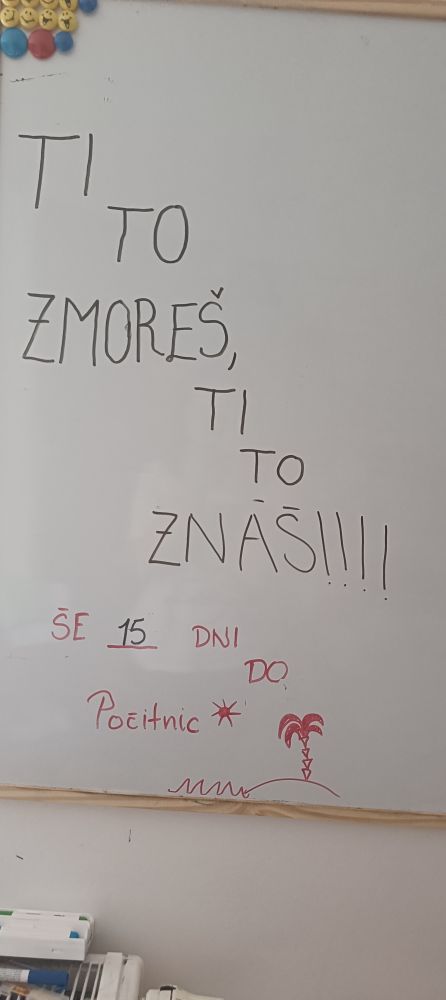 TI
TO
ZMOREŠ,
TI
TO
ZNAŠ!!!!
ŠE 15 DNI
DO
Počitnic